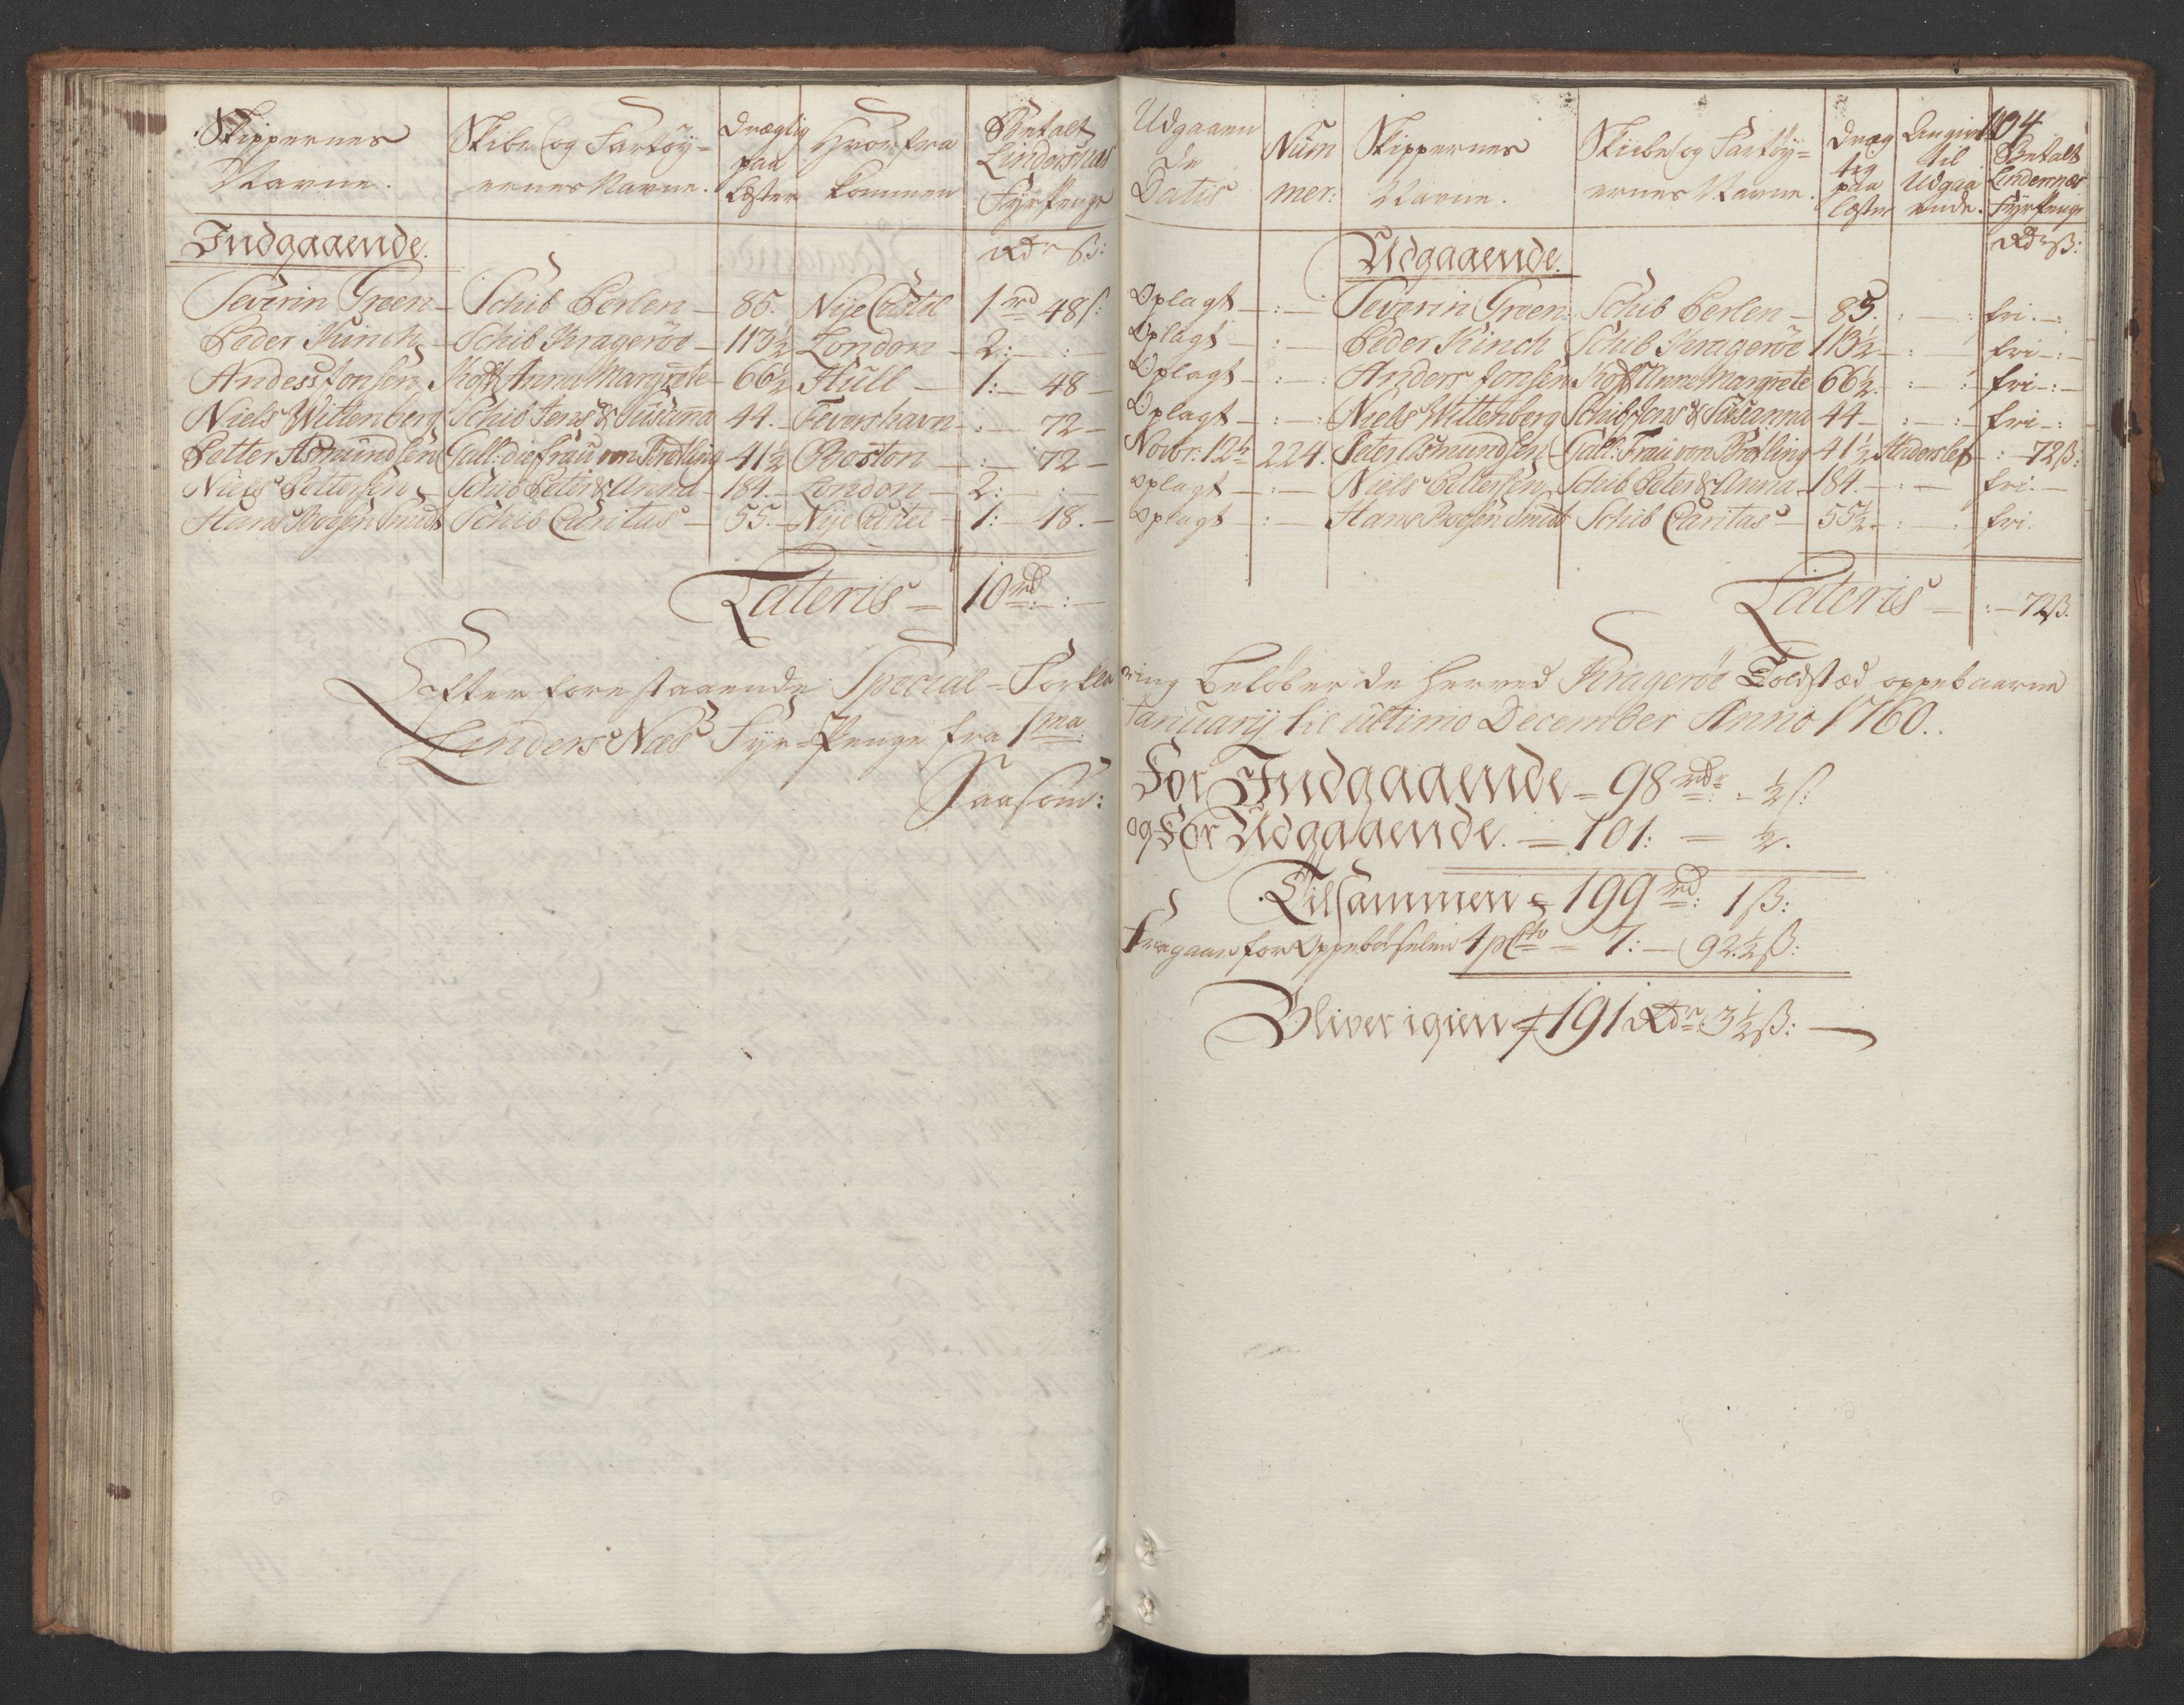 Skippernes Navne. | Skibe og Fartöy=ernes Navne. | Drægtig paa Læster | Hvor fra kommen | Betalt Lindersnæs Fyr Penge
Indgaaende. | Rdr ß:
Severin Green | Schib Perlen | 85. | Nije Castel | 1 rd 48 ß:
Peder Kinch | Schib Krageröe | 113½ | London | 2: — : —
Anders Jonsen | Koff Anna Margrete | 66½ | Hull | 1: — 48 —
Niels Wittenberg | Schib Jens & Susanna | 44. | Fevershavn | : — 72 —
Petter Asmundsen | Gall: die Frau von Bredling | 41½ | Boston | : — 72 —
Niels Pettersen | Schib Peter & Anna | 184. | London | 2: — : —
Hans Boysen Smidt | Schib Caritas | 55. | Nije Castel | 1: — 48. —
Lateris = 10 rd: — : —
Efter forestaaende Special=Forkla
Linders Næs Fyr=Penge fra 1ma
Saasom:
104
Udgaaende Datis | Num mer: | Skippernes Navne. | Skibe og Fartöy=ernes Navne. | Dræg tig paa Læster | Angivet til Udgaaende. | Betalt Lindernæs Fyr Penge
Udgaaende. | Rdr ß:
Oplagt — : — | Severin Green | Schib Perlen — | 85. | : — : | fri. — :
Oplagt — : — | Peder Kinch | Schib Krageröe | 113½ | — : | fri — : —
Oplagt — : — | Anders Jonsen | Koff Anna Margrete | 66½. | : — : | fri — : —
Oplagt — : — | Niels Wittenberg | Schib Jens & Susanna | 44 — | : — : | fri — :
Novbr: 12te | 224. | Peter Asmundsen | Gall: Frau von Bredling | 41½ | Haderslef | : — 72 ß:
oplagt — : — | Niels Pettersen | Schib Peter & Anna | 184. | — : — | fri. —
oplagt — : — | Hans Boysen Smidt | Schib Caritas | 55½ | : — : | fri.
Lateris — : — 72 ß.
ring Belöber de herved Krageröe Toldsted oppebaarne
Januarij til ultimo December Anno 1760.
For Indgaaende = 98 rdr: - ½ ß:
og For Udgaaende. = 101: — ½.
Tilsammen = 199 rd: 1 ß:
Fragaar for Oppebörselen 4 p Cto = 7: — 92½ ß:
Bliver igien 191 Rdr 3½ ß: —